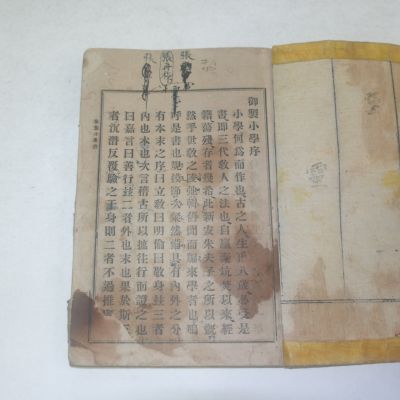 御製小學序
小學何爲而作也古之人生八歲必受是
書即三代敎人之法也自嬴秦坑焚以來經
籍蕩殘存者幾希此新安朱夫子之所以慨
然乎世敎之陵弛輯舊聞而來學者也嗚
呼是書也規模節次粲然備具有內外之分
有本末之序曰立敎曰明倫曰敬身玆三者
內也本也次言稽古所以摭往行而證之也
曰嘉言曰善行玆二者外也末也果於斯三
者沉潛反覆驗之于身則二者不過推
張
張
張
靈